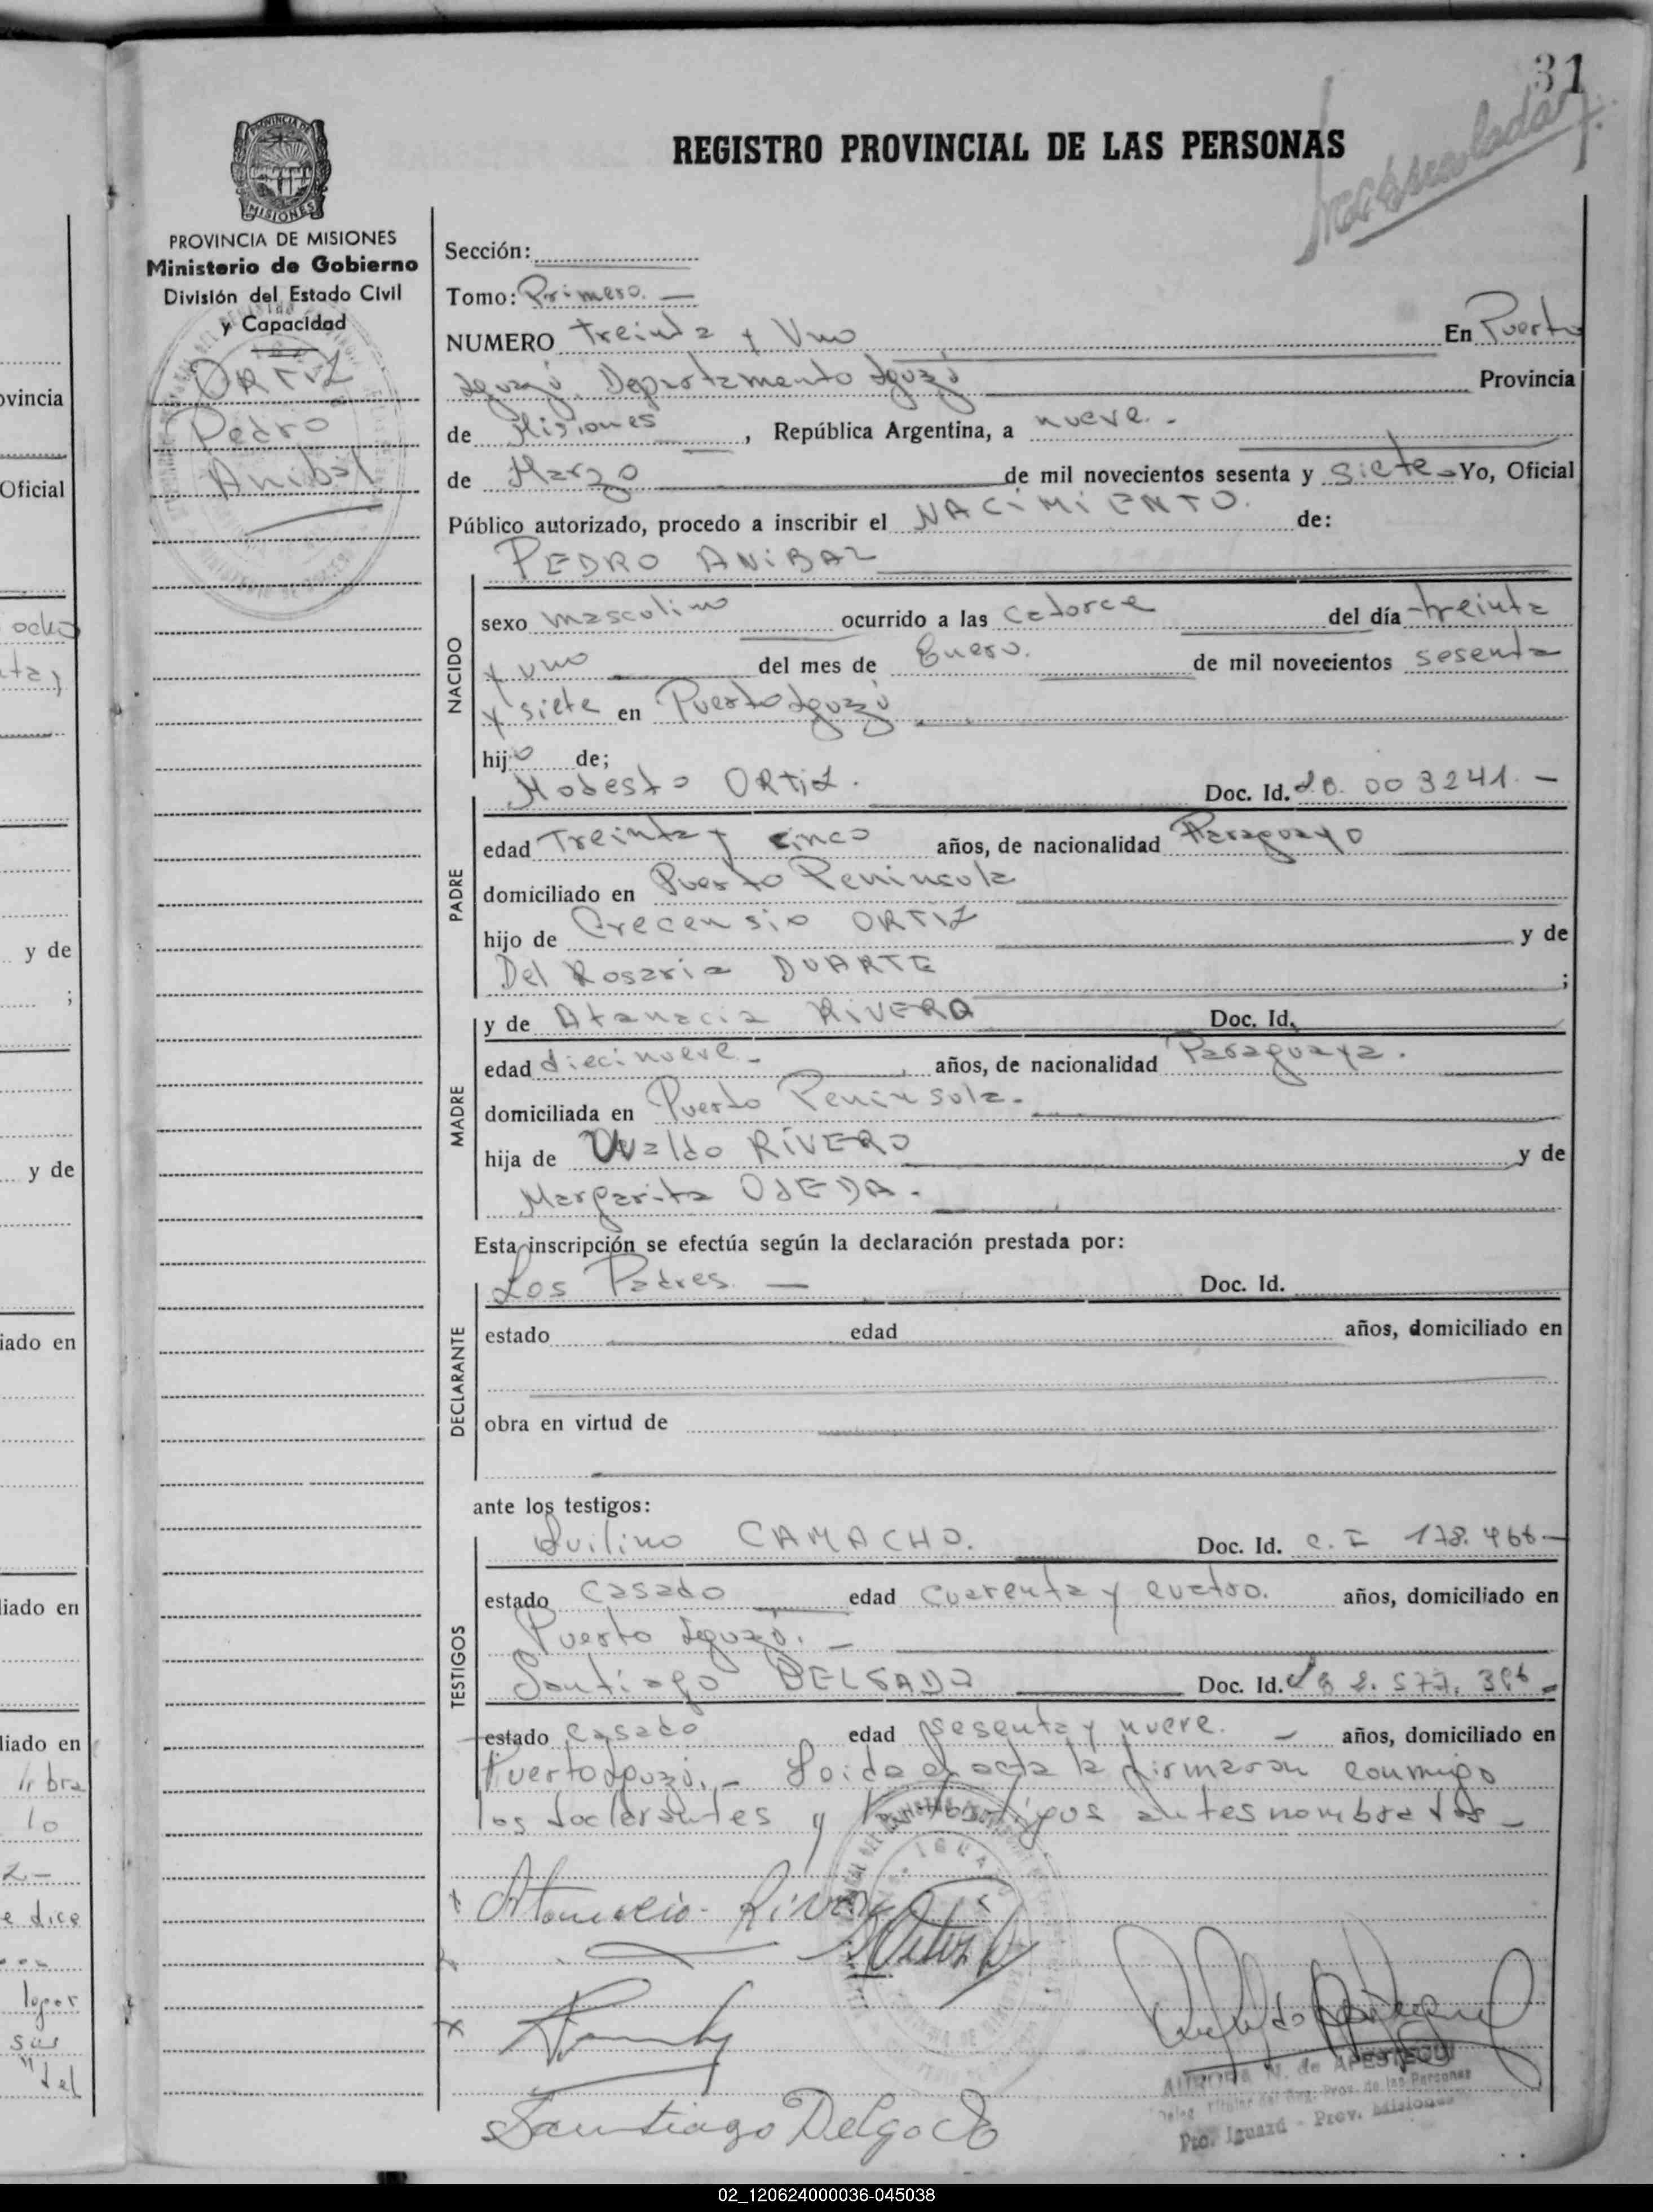 31
REGISTRO PROVINCIAL DE LAS PERSONAS
PROVINCIA DE MISIONES
Ministerio de Gobierno
División del Estado Civil
y Capacidad
ORTIZ
Pedro
Anibal
Sección:
Tomo: Primero.
NUMERO Treinta y Uno En Puerto
Iguazú. Departamento Iguazú Provincia
de Misiones, República Argentina, a nueve.-
de Marzo de mil novecientos sesenta y siete Yo, Oficial
Público autorizado, procedo a inscribir el NACIMIENTO. de:
PEDRO ANIBAL
NACIDO
sexo masculino ocurrido a las catorce del día treinta
y uno del mes de Enero. de mil novecientos sesenta
y siete en Puerto Iguazú
hijo de;
Modesto ORTIZ. Doc. Id. 003241.-
PADRE
edad Treinta y cinco años, de nacionalidad Paraguayo
domiciliado en Puerto Peninsula
hijo de Crecensio ORTIZ y de
Del Rosaria DUARTE ;
MADRE
y de Atanacia RIVERO Doc. Id.
edad diecinueve.- años, de nacionalidad Paraguaya.
domiciliada en Puerto Peninsula.
hija de Uvaldo RIVERO y de
Margarita OJEDA.
Esta inscripción se efectúa según la declaración prestada por:
DECLARANTE
Los Padres. — Doc. Id.
estado edad años, domiciliado en
obra en virtud de
ante los testigos:
TESTIGOS
Quilino CAMACHO. Doc. Id. C. I 178.466-
estado casado edad cuarenta y cuatro. años, domiciliado en
Puerto Iguazú. -
Santiago DELGADO Doc. Id. 2.577.
estado casado edad sesenta y nueve. - años, domiciliado en
Puerto Iguazú.- Leida el acta la firmaran conmigo
los declarantes y los testigos antes nombrados-
Atanacia Rivero
Ortiz
Santiago Delgado
AURORA N. de APESTEGUI
Deleg. Titular del Reg. Prov. de las Personas
Pto. Iguazú - Prov. Misiones
ovincia
Oficial
ocho
y de
;
y de
iado en
liado en
liado en
10
e dice
02_120624000036-045038